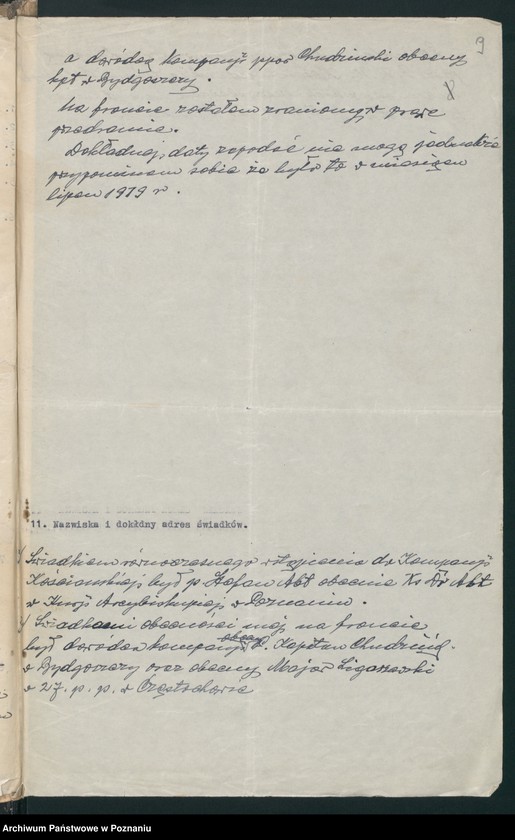 9
a dowódcą kompanji ppor Chudzinski obecny
kpt w Bydgoszczy.
Na froncie zostałem zraniony w prawe
przedramie.
Dokładnej daty zapodść nie mogę jednakże
przypominam sobie że było to w miesiącu
lipcu 1919 r.
11. Nazwiska i dokłdny adres świadków.
Świadkiem równoczesnego wstąpienia do Kompanji
Kościańskiej był p. Stefan Abt obecnie Ks Dr Abt
w Kurji Arcybiskupiej w Poznaniu.
Świadkami obecności mej na froncie
był dowódca kompanji obecny p. Kapitan Chudzińs.
w Bydgoszczy oraz obecny Major Ligaszewski
w 27. p. p. w Częstochowie
Archiwum Państwowe w Poznaniu